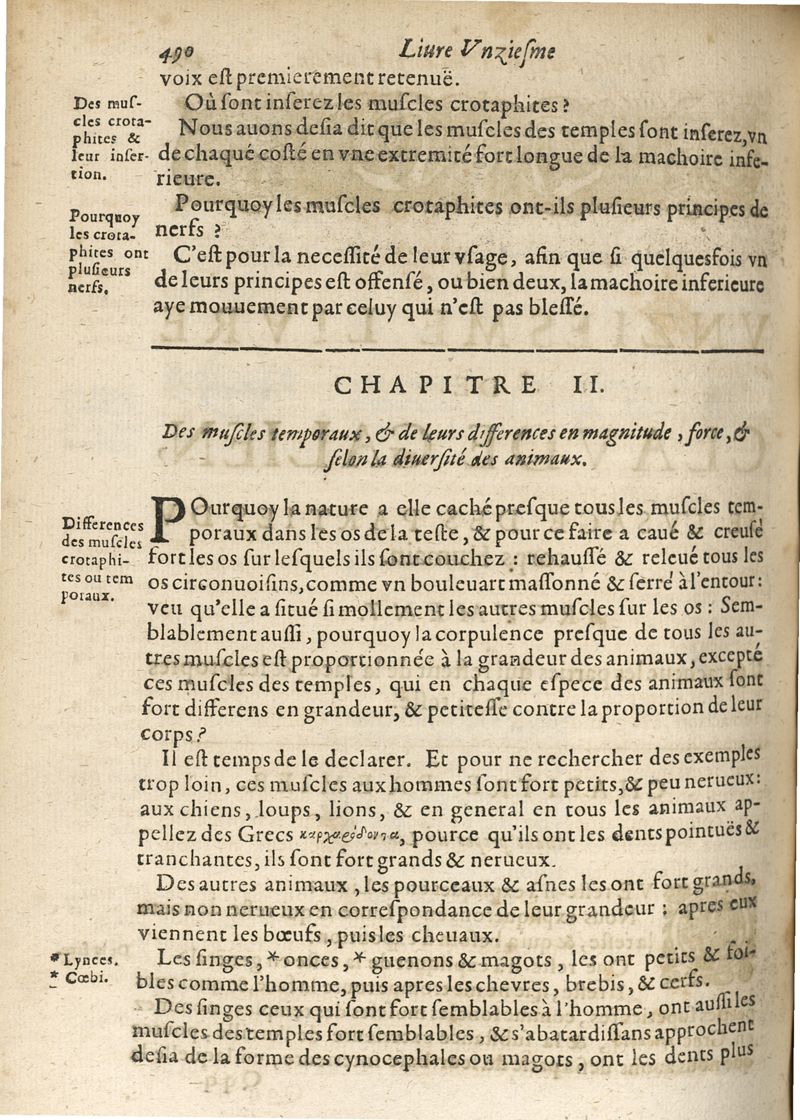 490 Liure Vnzieſme
voix eſt premierement retenuë.
Des muſ-
cles crota-
phites &
leur inſer-
tion.
Où ſont inſerez les muſcles crotaphites ?
Nous auons deſia dit que les muſcles des temples ſont inſerez, vn
de chaqué coſté en vne extremité fort longue de la machoire infe-
rieure.
Pourquoy
les crota-
phites ont
pluſieurs
nerfs.
Pourquoy les muſcles crotaphites ont-ils pluſieurs principes de
nerfs ?
C'eſt pour la neceſſité de leur vſage, afin que ſi quelquesfois vn
de leurs principes eſt offenſé, ou bien deux, la machoire inferieure
aye mouuement par celuy qui n'eſt pas bleſſé.
CHAPITRE II.
Des muſcles temporaux, & de leurs differences en magnitude, force, &
ſelon la diuerſité des animaux.
Differences
des muſcles
crotaphi-
tes ou tem
poraux.
POurquoy la nature a elle caché preſque tous les muſcles tem-
poraux dans les os de la teſte, & pour ce faire a caué & creuſé
fort les os ſur leſquels ils ſont couchez : rehauſſé & releué tous les
os circonuoiſins, comme vn bouleuart maſſonné & ſerré à l'entour:
veu qu'elle a ſitué ſi mollement les autres muſcles ſur les os : Sem-
blablement auſſi, pourquoy la corpulence preſque de tous les au-
tres muſcles eſt proportionnée à la grandeur des animaux, excepté
ces muſcles des temples, qui en chaque eſpece des animaux ſont
fort differens en grandeur, & petiteſſe contre la proportion de leur
corps ?
Il eſt temps de le declarer. Et pour ne rechercher des exemples
trop loin, ces muſcles aux hommes ſont fort petits, & peu nerueux:
aux chiens, loups, lions, & en general en tous les animaux ap-
pellez des Grecs καρχαρόδοντα, pource qu'ils ont les dents pointuës &
tranchantes, ils ſont fort grands & nerueux.
Des autres animaux, les pourceaux & aſnes les ont fort grands,
mais non nerueux en correſpondance de leur grandeur ; apres eux
viennent les bœufs, puis les cheuaux.
*Lynces.
* Cœbi.
Les ſinges, * onces, * guenons & magots, les ont petits & foi-
bles comme l'homme, puis apres les chevres, brebis, & cerfs.
Des ſinges ceux qui ſont fort ſemblables à l'homme, ont auſſi les
muſcles des temples fort ſemblables, & s'abatardiſſans approchent
deſia de la forme des cynocephales ou magots, ont les dents plus